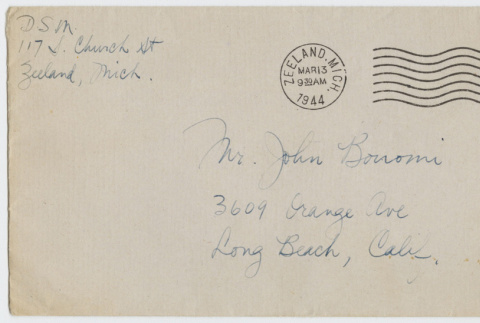 D S M.
117 S. Church St
Zeeland, Mich.
ZEELAND, MICH.
MAR 13
9 30 AM
1944
Mr. John Borromi
3609 Orange Ave
Long Beach, Calif.